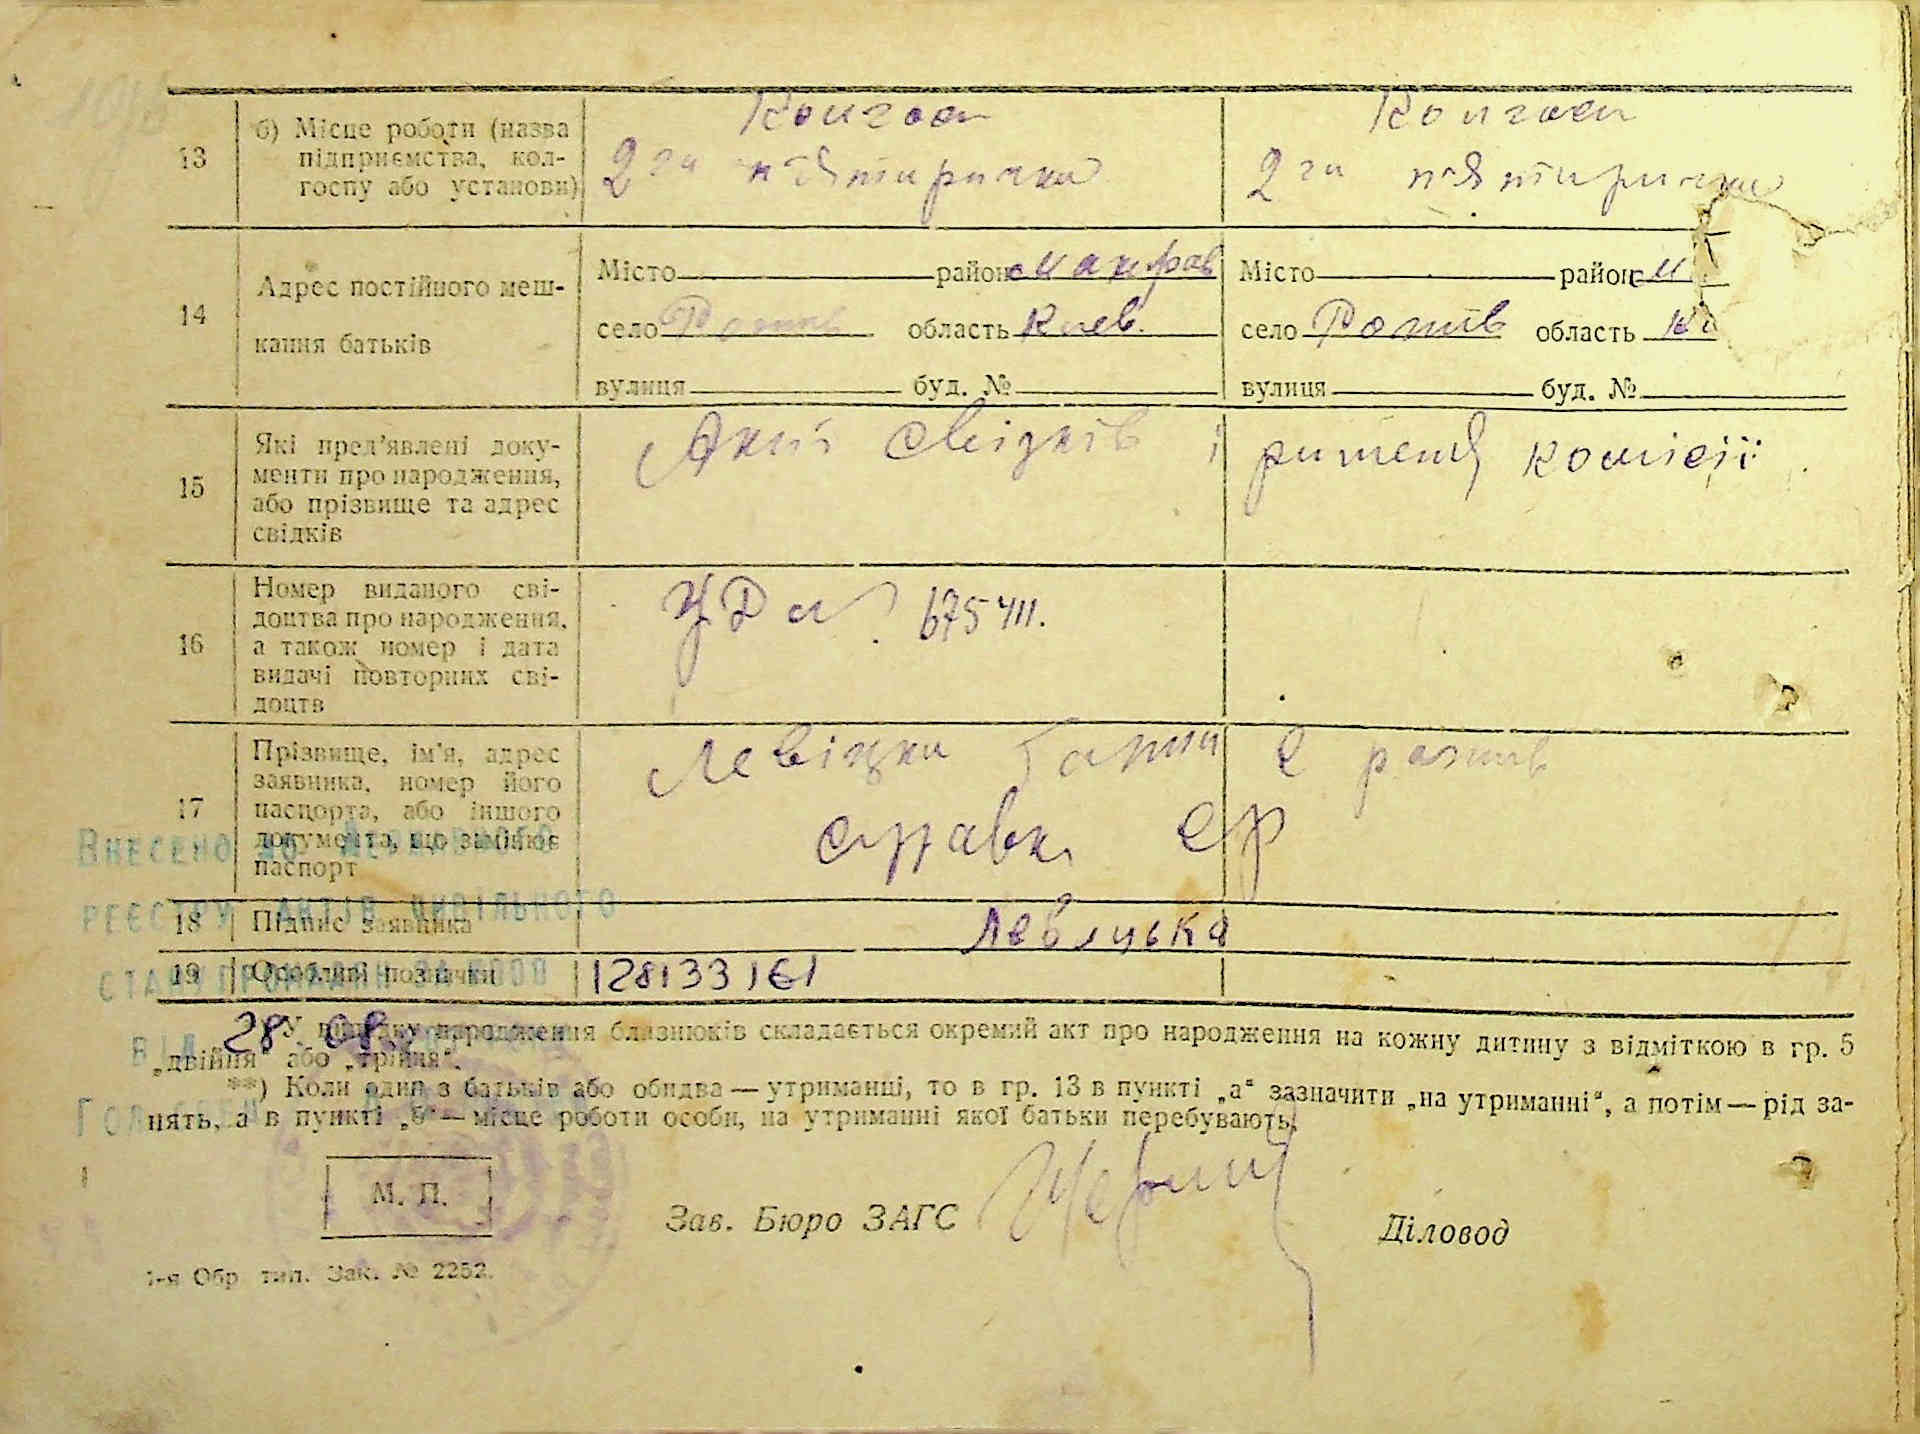 13 б) Місце роботи (назва підприємства, колгоспу або установи)
Колгосп
2га п'ятирічка
Колгосп
2га п'ятирічка
14 Адрес постійного мешкання батьків
Місто район Макарів
село Ротків область Киев.
вулиця буд. №
Місто район М
село область Ки
вулиця буд. №
15 Які пред'явлені документи про народження, або прізвище та адрес свідків
Акт свідків і рішення комісії
16 Номер виданого свідоцтва про народження, а також номер і дата видачі повторних свідоцтв
675411.
17 Прізвище, ім'я, адрес заявника, номер його паспорта, або іншого документа, що замінює паспорт
Левіцка
справка СР
18 Підпис заявника
Левіцька
19 Особливі позначки
128133161
Внесено до Державного
реєстру актів цивільного
стану громадян за
від 28 08
*) У випадку народження близнюків складається окремий акт про народження на кожну дитину з відміткою в гр. 5
„двійня“ або „трійня“.
**) Коли один з батьків або обидва — утриманці, то в гр. 13 в пункті „а“ зазначити „на утриманні“, а потім — рід за-
нять, а в пункті „б“ — місце роботи особи, на утриманні якої батьки перебувають.
М. П.
Зав. Бюро ЗАГС
Діловод
1-я Обр. тип. Зак. № 2252.